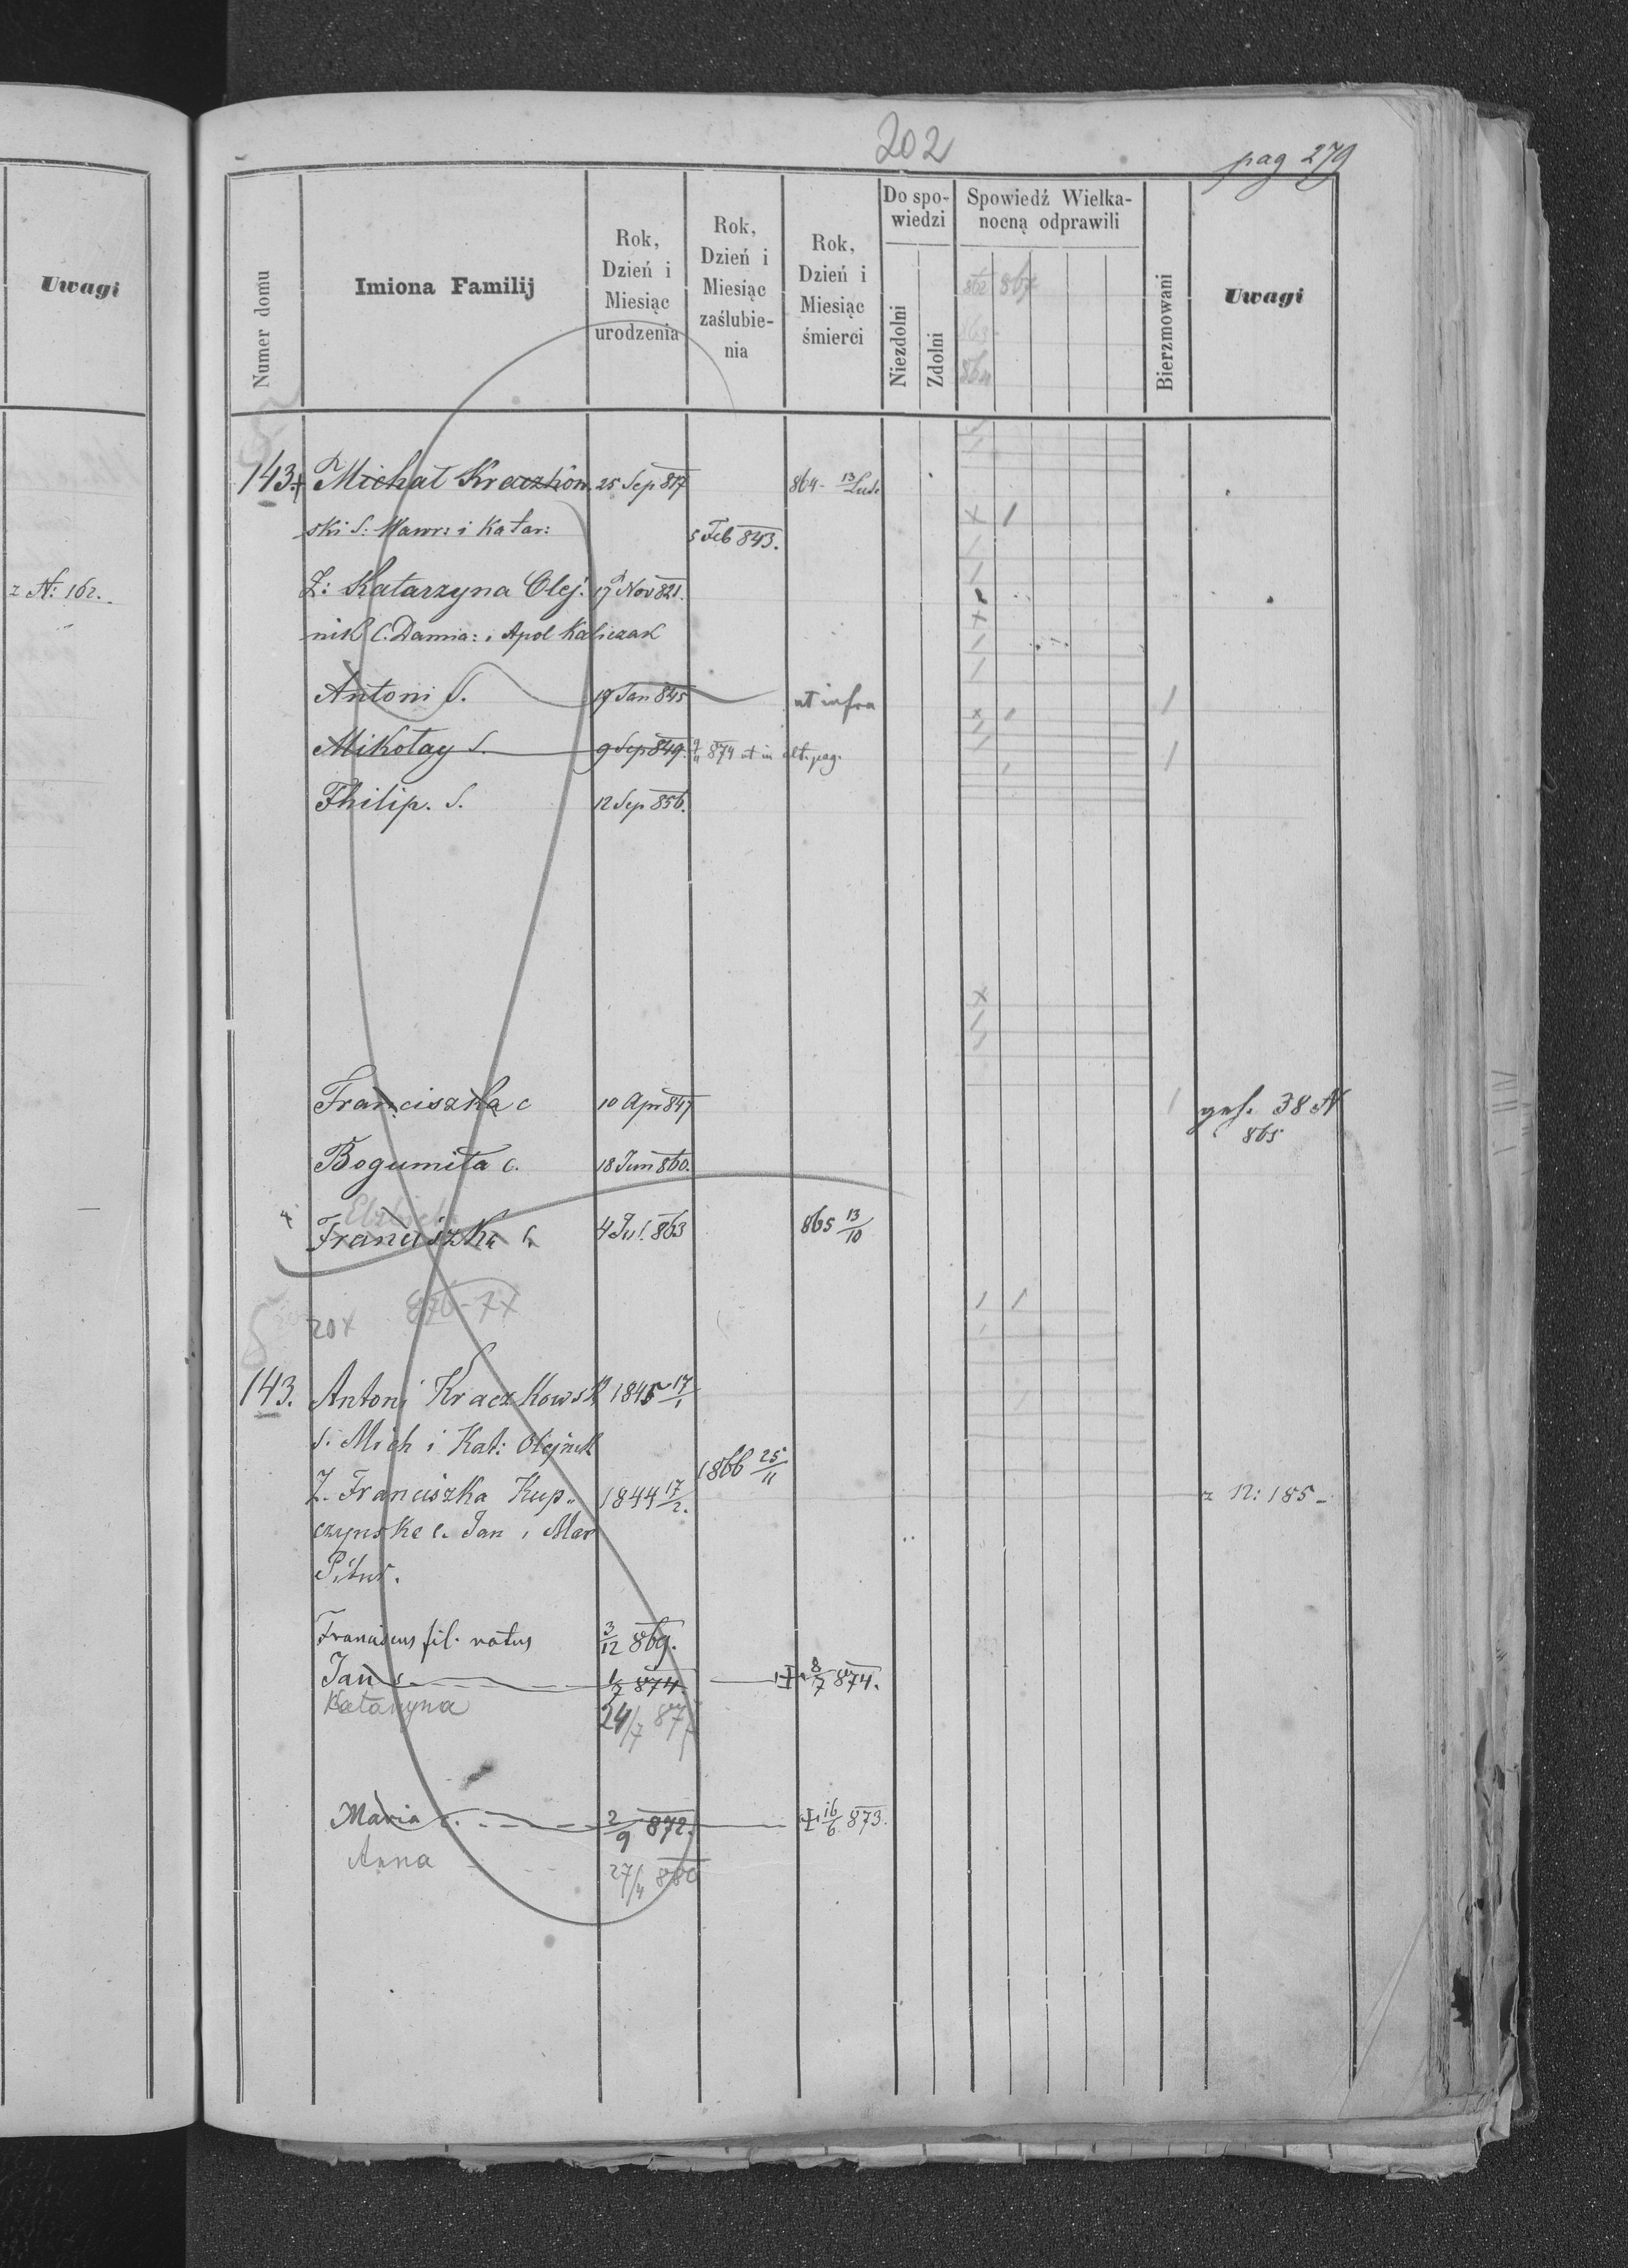 202
pag 279
Uwagi
Numer domu
Imiona Familij
Rok, Dzień i Miesiąc urodzenia
Rok, Dzień i Miesiąc zaślubie-nia
Rok, Dzień i Miesiąc śmierci
Do spo-wiedzi
Niezdolni
Zdolni
Spowiedź Wielka-nocną odprawili
862 867
863
864
Bierzmowani
Uwagi
z N: 162.
143. + Michał Kraczkow. 25 Sep 817 864 - 13 Lut.
ski S: Wawr: i Katar: 5 Feb 843.
Ż: Katarzyna Olej. 17 Nov 821.
nik C. Damia: i Apol Kaliczak
Antoni S. 17 Jan 845 ut infra
Mikołay S. 9 Sep 849. 9/11 874 ut in alt. pag.
Fhilip. S. 12 Sep 856.
Franciszka c 10 Apr 847 38 N
865
Bogumiła c. 18 Jun 860.
Elżbieta
Franciszka c. 4 Jul. 863 865 13/10
20 x 876-77
143. Antoni Kraczkowski 1845 17/1
s. Mich i Kat: Olejnik
1866 25/11
Ż. Franciszka Kup„ 1844 17/2. z N: 185 -
czynska c. Jan i Mar
Pituł.
Franciscus fil. natus 3/12 869.
Jan s. 1/7 874. + 8/7 874.
Katarzyna 24/7 877
Maria c. 2/9 872. + 16/6 873.
Anna 27/4 880